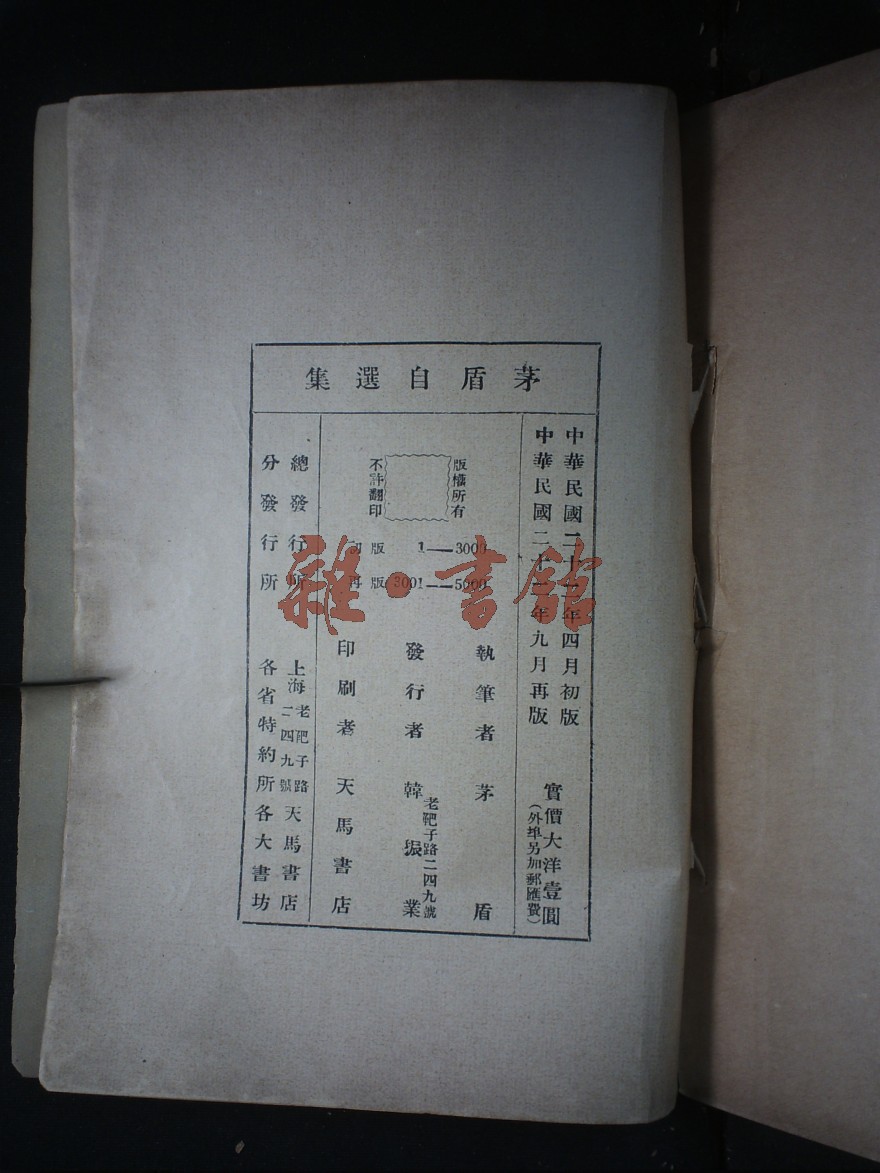 茅盾自選集
中華民國二十二年四月初版
中華民國二十二年九月再版
實價大洋壹圓
(外埠另加郵匯費)
版權所有
不許翻印
初版 1—3000
再版 3001—5000
執筆者 茅盾
發行者 韓振業
老靶子路二四九號
印刷者 天馬書店
總發行所 上海老靶子路二四九號天馬書店
分發行所 各省特約所各大書坊
雜·書館